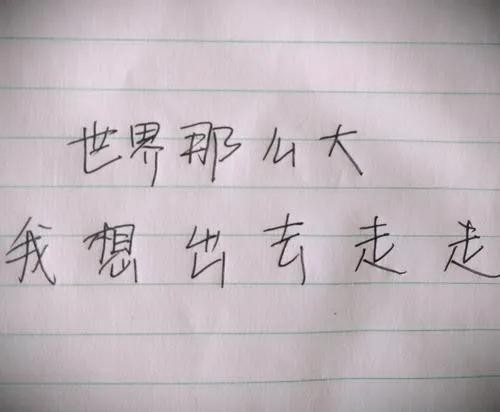 世界那么大
我想出去走走